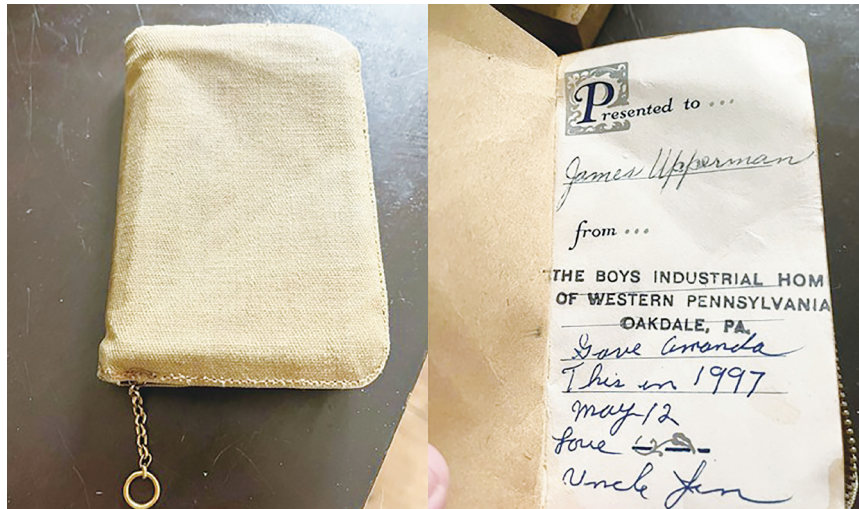 Presented to ...
James Upperman
from ...
THE BOYS INDUSTRIAL HOM
OF WESTERN PENNSYLVANIA
OAKDALE, PA.
Gave Amanda
This in 1997
may 12
Love
Uncle Jim